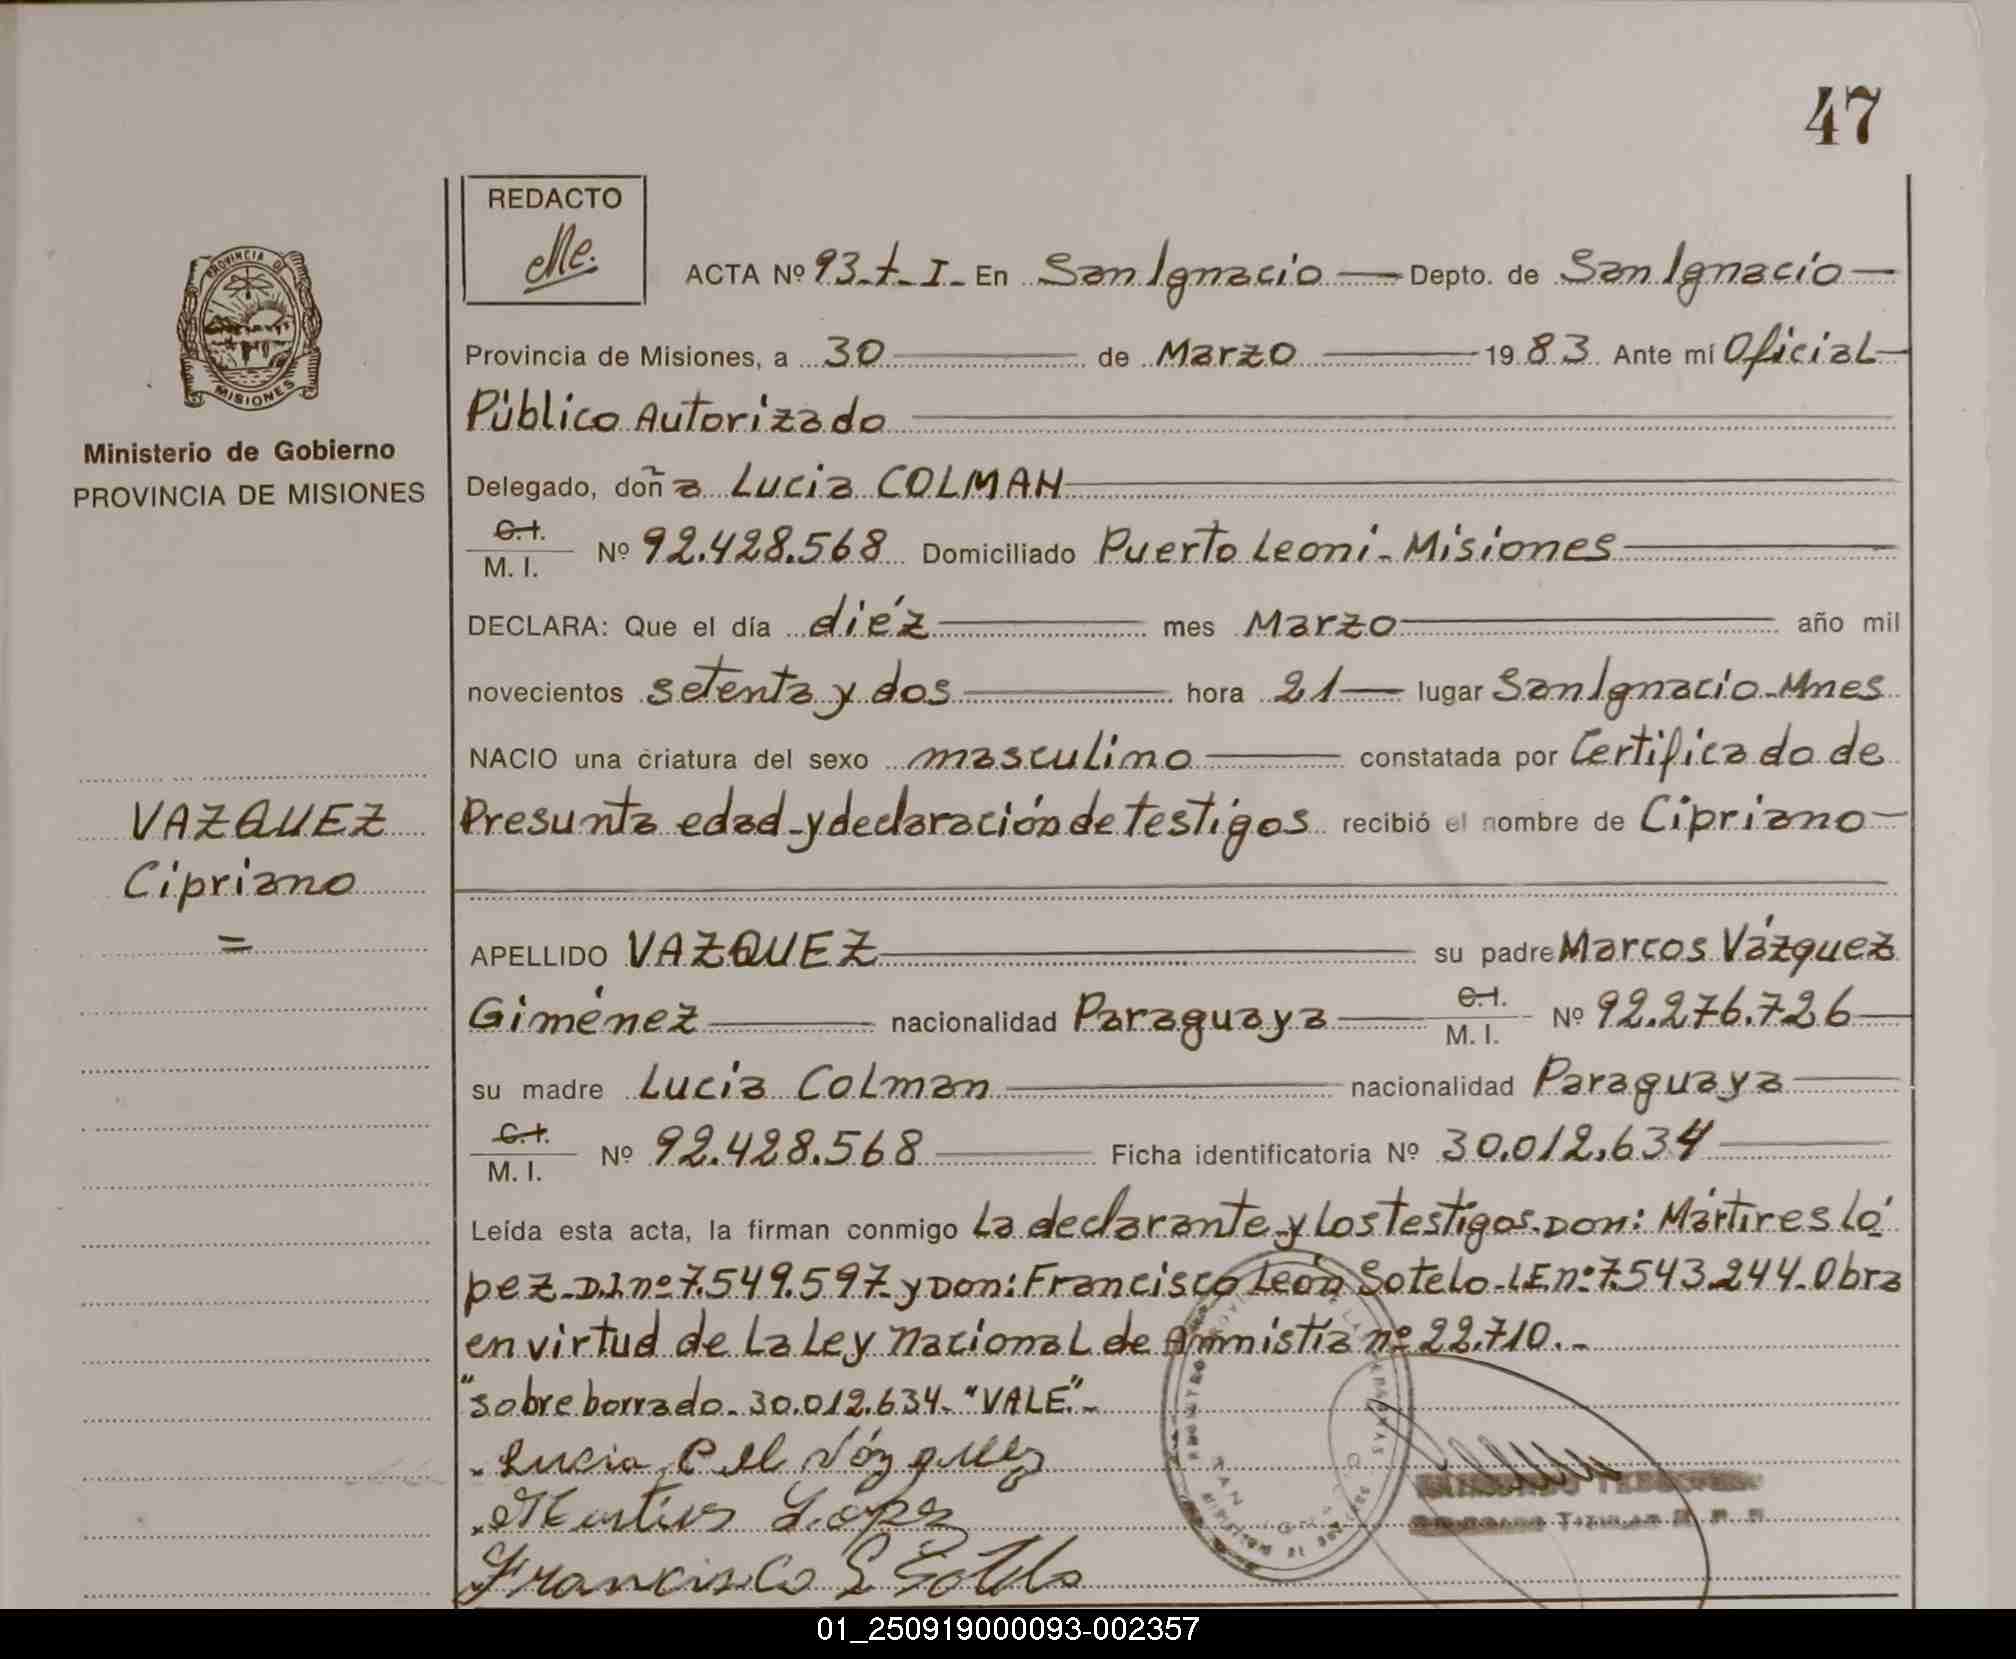 47
REDACTO
Me.
PROVINCIA DE
MISIONES
Ministerio de Gobierno
PROVINCIA DE MISIONES
ACTA Nº 93-t-I- En San Ignacio Depto. de San Ignacio
Provincia de Misiones, a 30 de Marzo 1983 Ante mí Oficial
Público Autorizado
Delegado, doña Lucia COLMAN
C.I.
M. I. Nº 92.428.568 Domiciliado Puerto Leoni - Misiones
DECLARA: Que el día diéz mes Marzo año mil
novecientos setenta y dos hora 21 lugar San Ignacio-Mnes
NACIO una criatura del sexo masculino constatada por Certificado de
Presunta edad-y declaración de testigos recibió el nombre de Cipriano
VAZQUEZ
Cipriano
=
APELLIDO VAZQUEZ su padre Marcos Vázquez
Giménez nacionalidad Paraguaya C.I. M. I. Nº 92.276.726
su madre Lucia Colman nacionalidad Paraguaya
C.I.
M. I. Nº 92.428.568 Ficha identificatoria Nº 30.012.634
Leída esta acta, la firman conmigo La declarante y Los testigos. Don: Mártires Ló
pez-D.I nº 7.549.597-y Don: Francisco León Sotelo-LE nº 7.543.244-Obra
en virtud de La Ley Nacional de Amnistía nº 22.710.-
"sobre borrado-30.012.634-"VALE".-
Lucia C de Vázquez
Martires López
Francisco L Sotelo
01_250919000093-002357